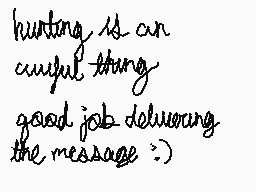 hunting is an
awful thing
good job delivering
the message :)